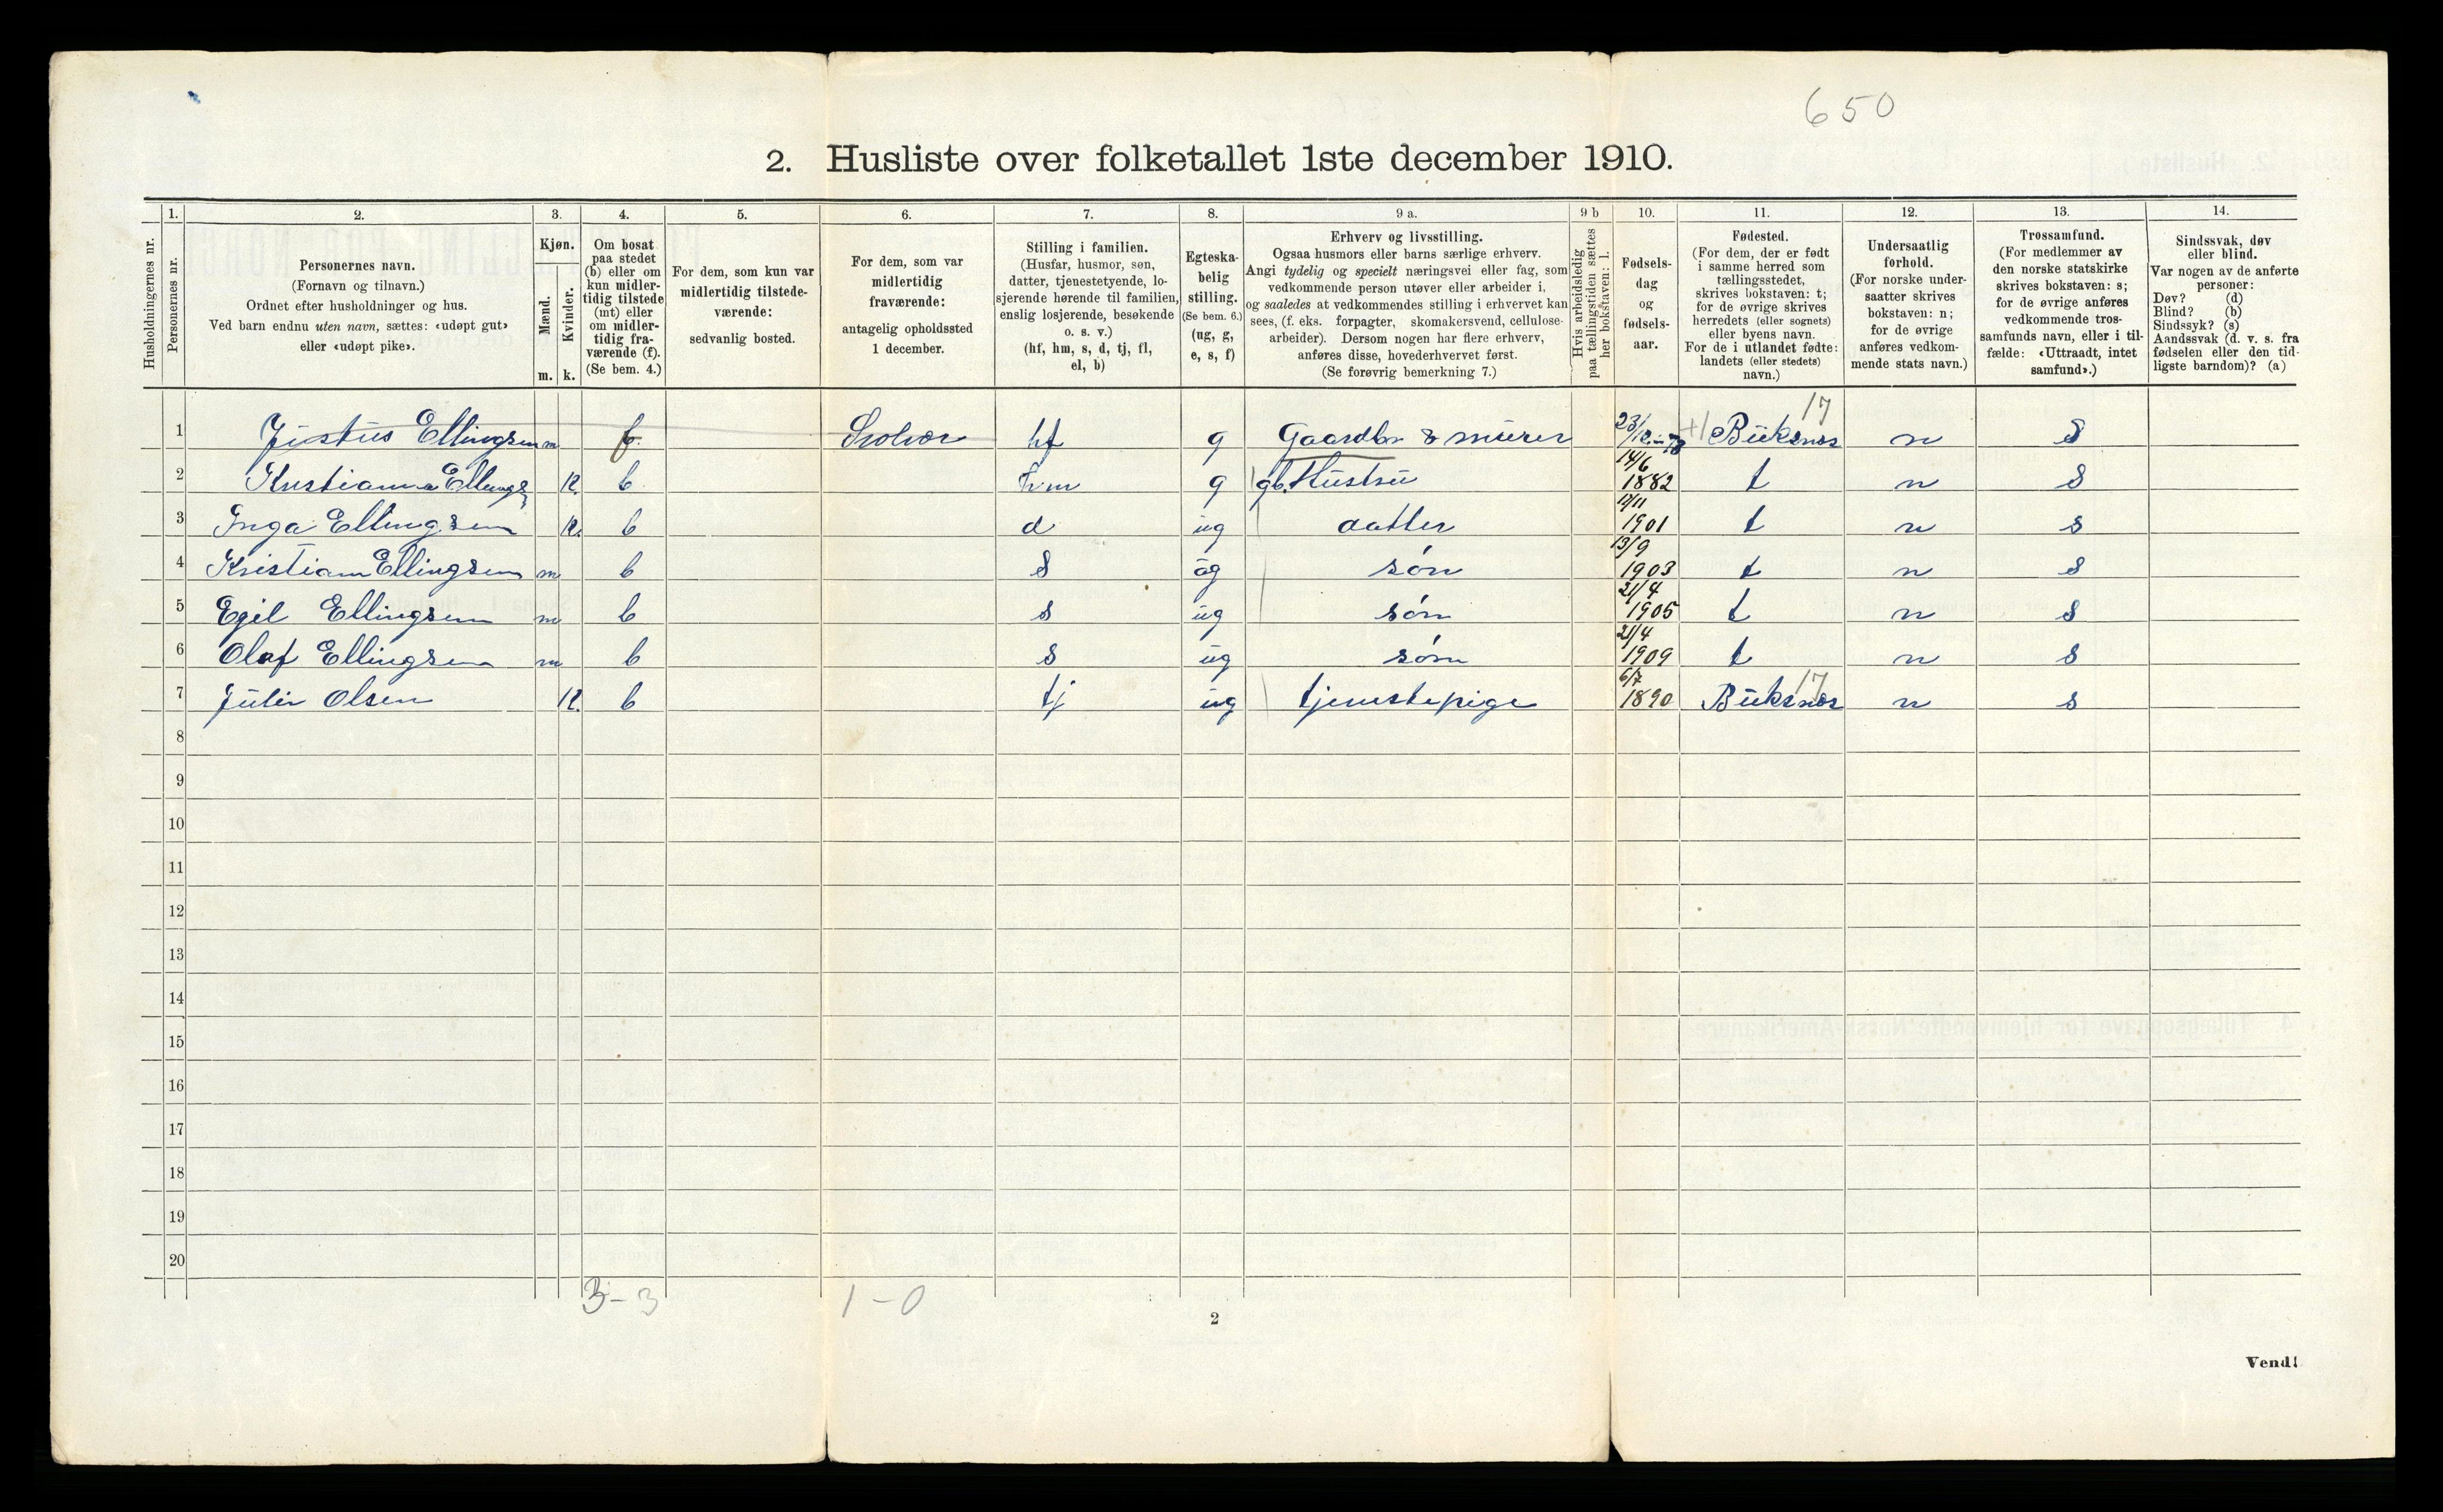 650
2. Husliste over folketallet 1ste december 1910.
1. 2. 3. 4. 5. 6. 7. 8. 9 a. 9 b 10. 11. 12. 13. 14.
Husholdningernes nr.
Personernes nr.
Personernes navn.
(Fornavn og tilnavn.)
Ordnet efter husholdninger og hus.
Ved barn endnu uten navn, sættes: «udøpt gut»
eller «udøpt pike».
Kjøn.
Mænd.
Kvinder.
m. k.
Om bosat
paa stedet
(b) eller om
kun midler-
tidig tilstede
(mt) eller
om midler-
tidig fra-
værende (f).
(Se bem. 4.)
For dem, som kun var
midlertidig tilstede-
værende:
sedvanlig bosted.
For dem, som var
midlertidig
fraværende:
antagelig opholdssted
1 december.
Stilling i familien.
(Husfar, husmor, søn,
datter, tjenestetyende, lo-
sjerende hørende til familien,
enslig losjerende, besøkende
o. s. v.)
(hf, hm, s, d, tj, fl,
el, b)
Egteska-
belig
stilling.
(Se bem. 6.)
(ug, g,
e, s, f)
Erhverv og livsstilling.
Ogsaa husmors eller barns særlige erhverv.
Angi tydelig og specielt næringsvei eller fag, som
vedkommende person utøver eller arbeider i,
og saaledes at vedkommendes stilling i erhvervet kan
sees, (f. eks. forpagter, skomakersvend, cellulose-
arbeider). Dersom nogen har flere erhverv,
anføres disse, hovederhvervet først.
(Se forøvrig bemerkning 7.)
Hvis arbeidsledig
paa tællingstiden sættes
her bokstaven: l.
Fødsels-
dag
og
fødsels-
aar.
Fødested.
(For dem, der er født
i samme herred som
tællingsstedet,
skrives bokstaven: t;
for de øvrige skrives
herredets (eller sognets)
eller byens navn.
For de i utlandet fødte:
landets (eller stedets)
navn.)
Undersaatlig
forhold.
(For norske under-
saatter skrives
bokstaven: n;
for de øvrige
anføres vedkom-
mende stats navn.)
Trossamfund.
(For medlemmer av
den norske statskirke
skrives bokstaven: s;
for de øvrige anføres
vedkommende tros-
samfunds navn, eller i til-
fælde: «Uttraadt, intet
samfund».)
Sindssvak, døv
eller blind.
Var nogen av de anførte
personer:
Døv? (d)
Blind? (b)
Sindssyk? (s)
Aandssvak (d. v. s. fra
fødselen eller den tid-
ligste barndom)? (a)
1 Justus Ellingsen m f. Svolvær hf g Gaardbr & murer 23/12 - 78 Buksnes 17 n S
2 Kristianna Ellings k. b hm g gb. Hustru 14/6 1882 t n S
3 Inga Ellingsen k. b d ug datter 17/11 1901 t n s
4 Kristian Ellingsen m b S ug søn 13/9 1903 t n s
5 Egil Ellingsen m b s ug søn 21/4 1905 t n s
6 Olaf Ellingsen m b s ug søn 21/4 1909 t n s
7 Julie Olsen k. b tj ug tjenestepige 6/7 1890 Buksnes 17 n s
8
9
10
11
12
13
14
15
16
17
18
19
20
3 - 3 1 - 0
2
Vend!